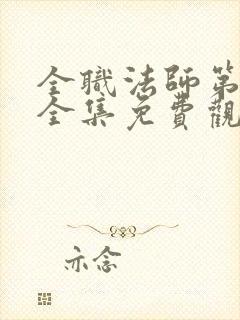 全職法師第
全集免費觀
亦念